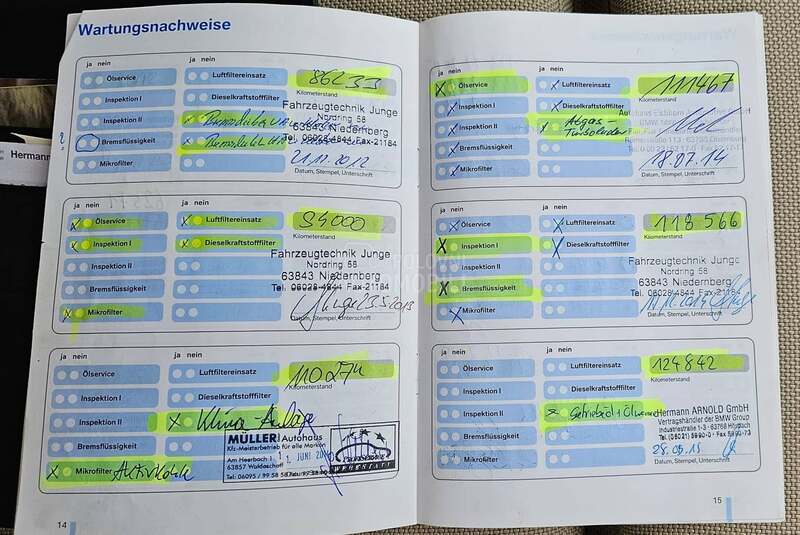 Wartungsnachweise
ja nein
ja nein
Ölservice
Luftfiltereinsatz
86233
Kilometerstand
Inspektion I
Dieselkraftstofffilter
Fahrzeugtechnik Junge
Nordring 58
63843 Niedernberg
Tel. 06028-4844 Fax-21184
Inspektion II
?
Bremsflüssigkeit
Mikrofilter
21.11.2012
Datum, Stempel, Unterschrift
ja nein
ja nein
x Ölservice
x Luftfiltereinsatz
94000
Kilometerstand
x Inspektion I
x Dieselkraftstofffilter
Fahrzeugtechnik Junge
Nordring 58
63843 Niedernberg
Tel. 06028-4844 Fax-21184
Inspektion II
Bremsflüssigkeit
x Mikrofilter
23.5.2013
Datum, Stempel, Unterschrift
ja nein
ja nein
Ölservice
Luftfiltereinsatz
110274
Kilometerstand
Inspektion I
Dieselkraftstofffilter
Inspektion II
x Klima-Anlage
Bremsflüssigkeit
MÜLLER Autohaus
Kfz-Meisterbetrieb für alle Marken
Am Heerbach
63857 Waldaschaff
Tel. 06095 / 99 58 58
11. JUNI
x Mikrofilter Aktivkohle
14
Hermann
ja nein
ja nein
x Ölservice
x Luftfiltereinsatz
111467
Kilometerstand
x Inspektion I
x Dieselkraftstofffilter
x Inspektion II
x Abgas-
x Bremsflüssigkeit
x Mikrofilter
18.07.14
Datum, Stempel, Unterschrift
ja nein
ja nein
x Ölservice
x Luftfiltereinsatz
118566
Kilometerstand
x Inspektion I
x Dieselkraftstofffilter
Fahrzeugtechnik Junge
Nordring 58
63843 Niedernberg
Tel. 06028-4844 Fax-21184
Inspektion II
x Bremsflüssigkeit
x Mikrofilter
Datum, Stempel, Unterschrift
ja nein
ja nein
Ölservice
Luftfiltereinsatz
124842
Kilometerstand
Inspektion I
Dieselkraftstofffilter
Inspektion II
Hermann ARNOLD GmbH
Vertragshändler der BMW Group
Industriestraße 1-3 · 63768 Hösbach
Bremsflüssigkeit
Mikrofilter
28.09.15
Datum, Stempel, Unterschrift
15